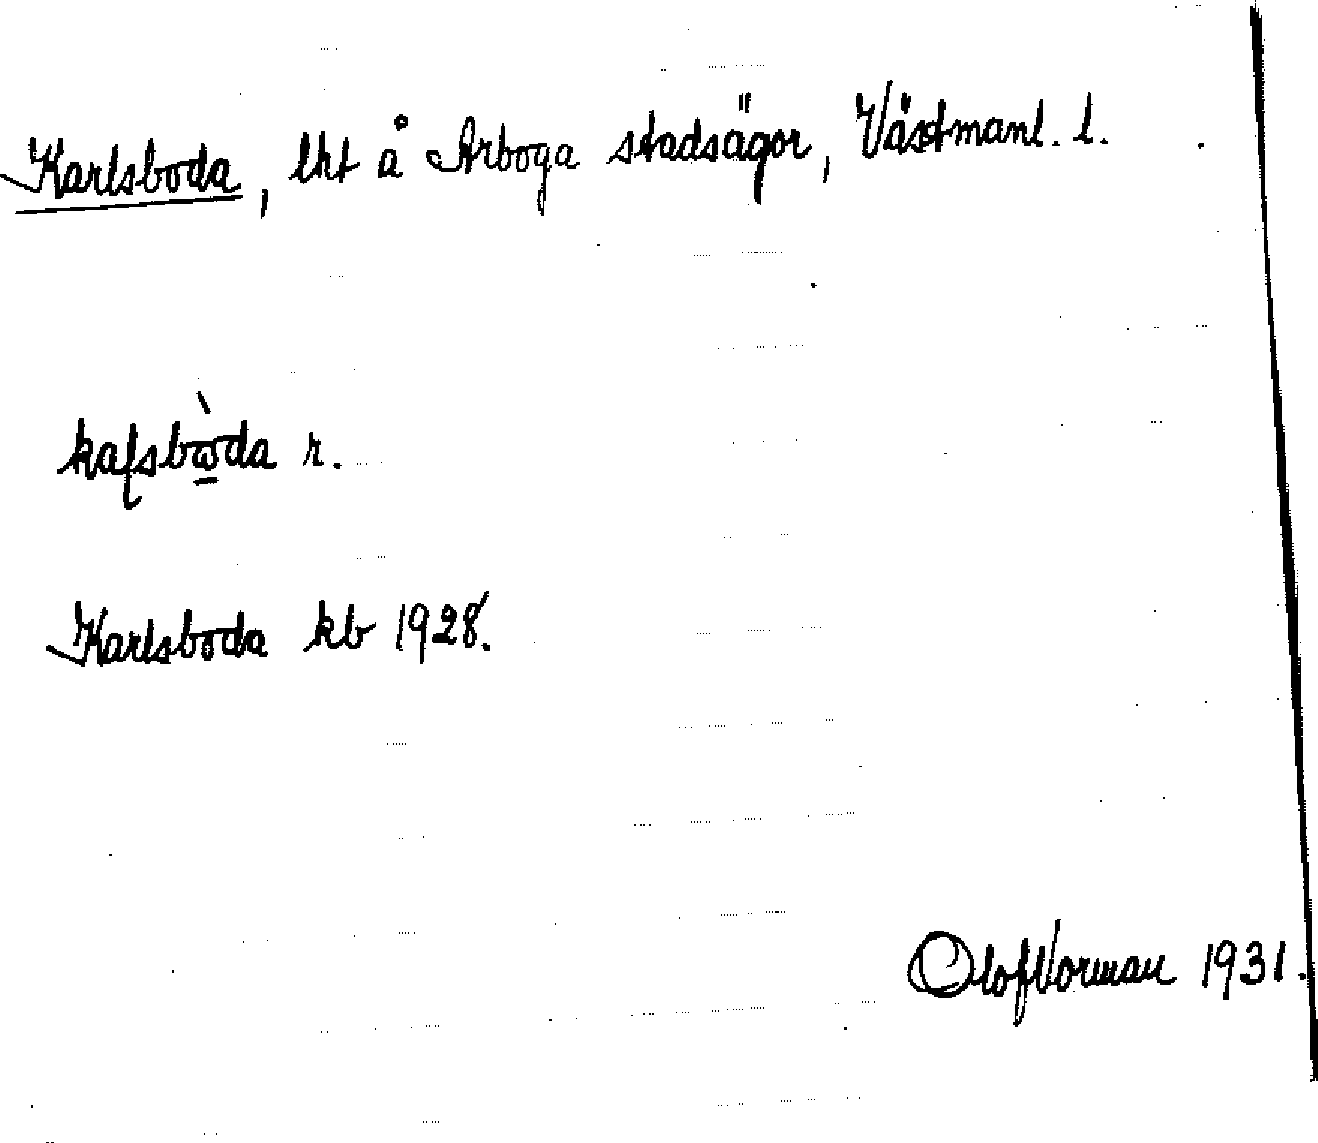 Karlsboda, lht å Arboga stadsägor, Västmanl. l.
kaſsbὼda r.
Karlsboda kb 1928.
Olof Vorman 1931.